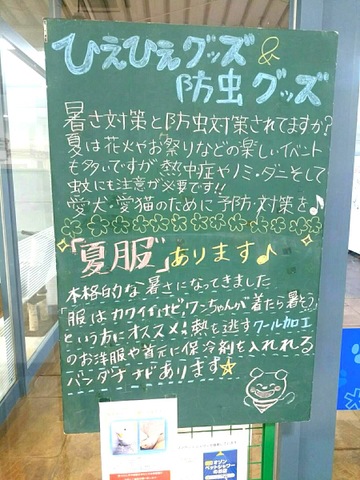 ひえひえグッズ&
防虫グッズ
暑さ対策と防虫対策されてますか?
夏は花火やお祭りなどの楽しいイベント
も多いですが熱中症やノミ・ダニそして
蚊にも注意が必要です!!
愛犬・愛猫のために予防・対策を♪
「夏服」あります♪
本格的な暑さになってきました
「服はカワイイけどワンちゃんが着たら暑そう」
という方にオススメ!熱を逃すクール加工
のお洋服や首元に保冷剤を入れれる
バンダナなどあります☆